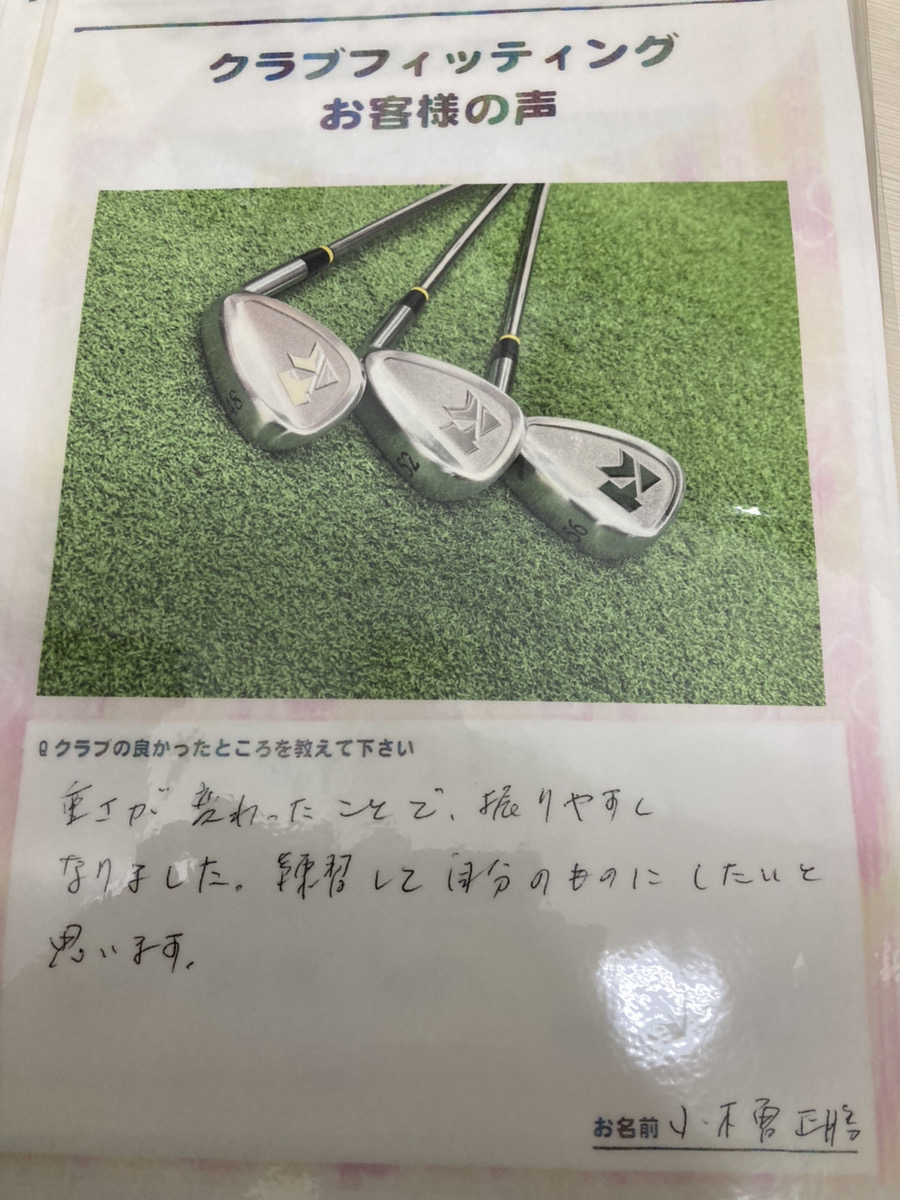 クラブフィッティング
お客様の声
52
56
Q クラブの良かったところを教えて下さい
重さが変わったことで、振りやすく
なりました。練習して自分のものにしたいと
思います。
お名前 小木曽